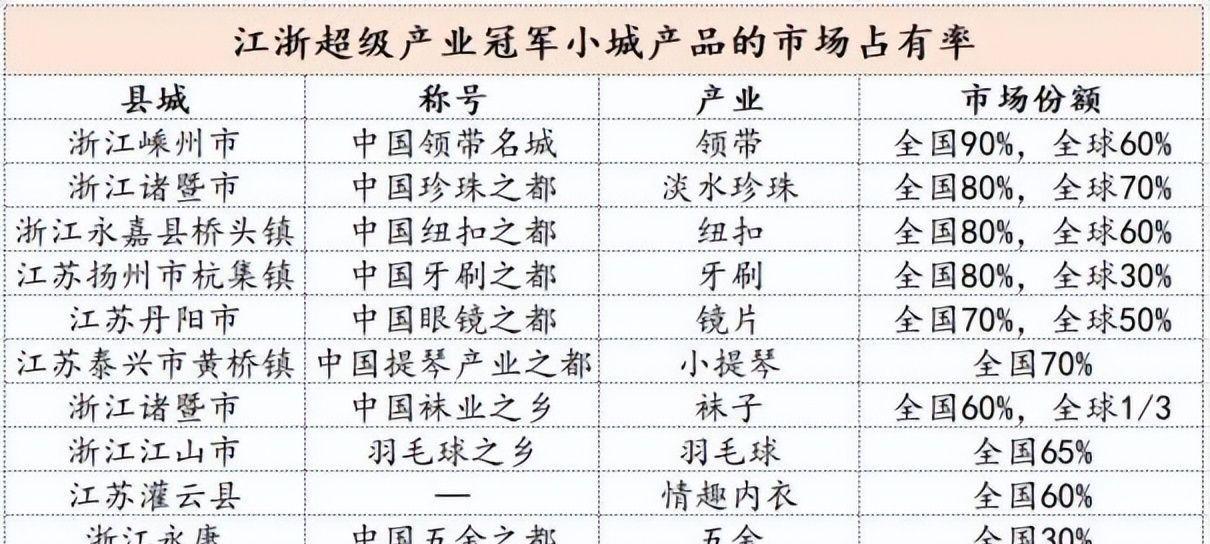 江浙超级产业冠军小城产品的市场占有率
县城 称号 产业 市场份额
浙江嵊州市 中国领带名城 领带 全国90%，全球60%
浙江诸暨市 中国珍珠之都 淡水珍珠 全国80%，全球70%
浙江永嘉县桥头镇 中国纽扣之都 纽扣 全国80%，全球60%
江苏扬州市杭集镇 中国牙刷之都 牙刷 全国80%，全球30%
江苏丹阳市 中国眼镜之都 镜片 全国70%，全球50%
江苏泰兴市黄桥镇 中国提琴产业之都 小提琴 全国70%
浙江诸暨市 中国袜业之乡 袜子 全国60%，全球1/3
浙江江山市 羽毛球之乡 羽毛球 全国65%
江苏灌云县 — 情趣内衣 全国60%
浙江永康 中国五金之都 五金 全国30%